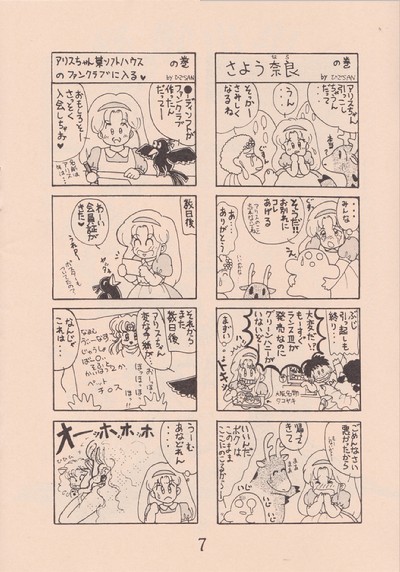 さよう奈良
なら
の巻
by DZSAN
アリスちゃん
引っこし
しちゃう
んだって・・・
うん・・・
そっかー
さみしく
なるね
みんな
・・・
そうだ!!
お別れに
コレ
あげる
あ・・・
ありがとう
ぶじ
引越しも
終り・・・
大変だい!
もーすぐ
ランスⅢが
発売なのに
グリーンハニーが
いないと!
まずい!
ドキッ
大阪名物
タコヤキ
ごめんなさい
悪かったから
帰って
きて
いいんだ
ボクは
このまま
ここにのこるから!
いじ
いじ
アリスちゃん某ソフトハウス
のファンクラブに入る♥
の巻
by DZSAN
●ディソフトが
ファンクラブ
作ったん
だって
おもしろそー
さっそく
入会しちゃお♥
数日後
わーい
会員証が
きた♥
それから
また
数日後
アリスちゃん
変な手紙が・・・
なんじゃ
これは・・・
ペット
チロス
うーむ
あなどれん
・・・
オーッホホホ
7